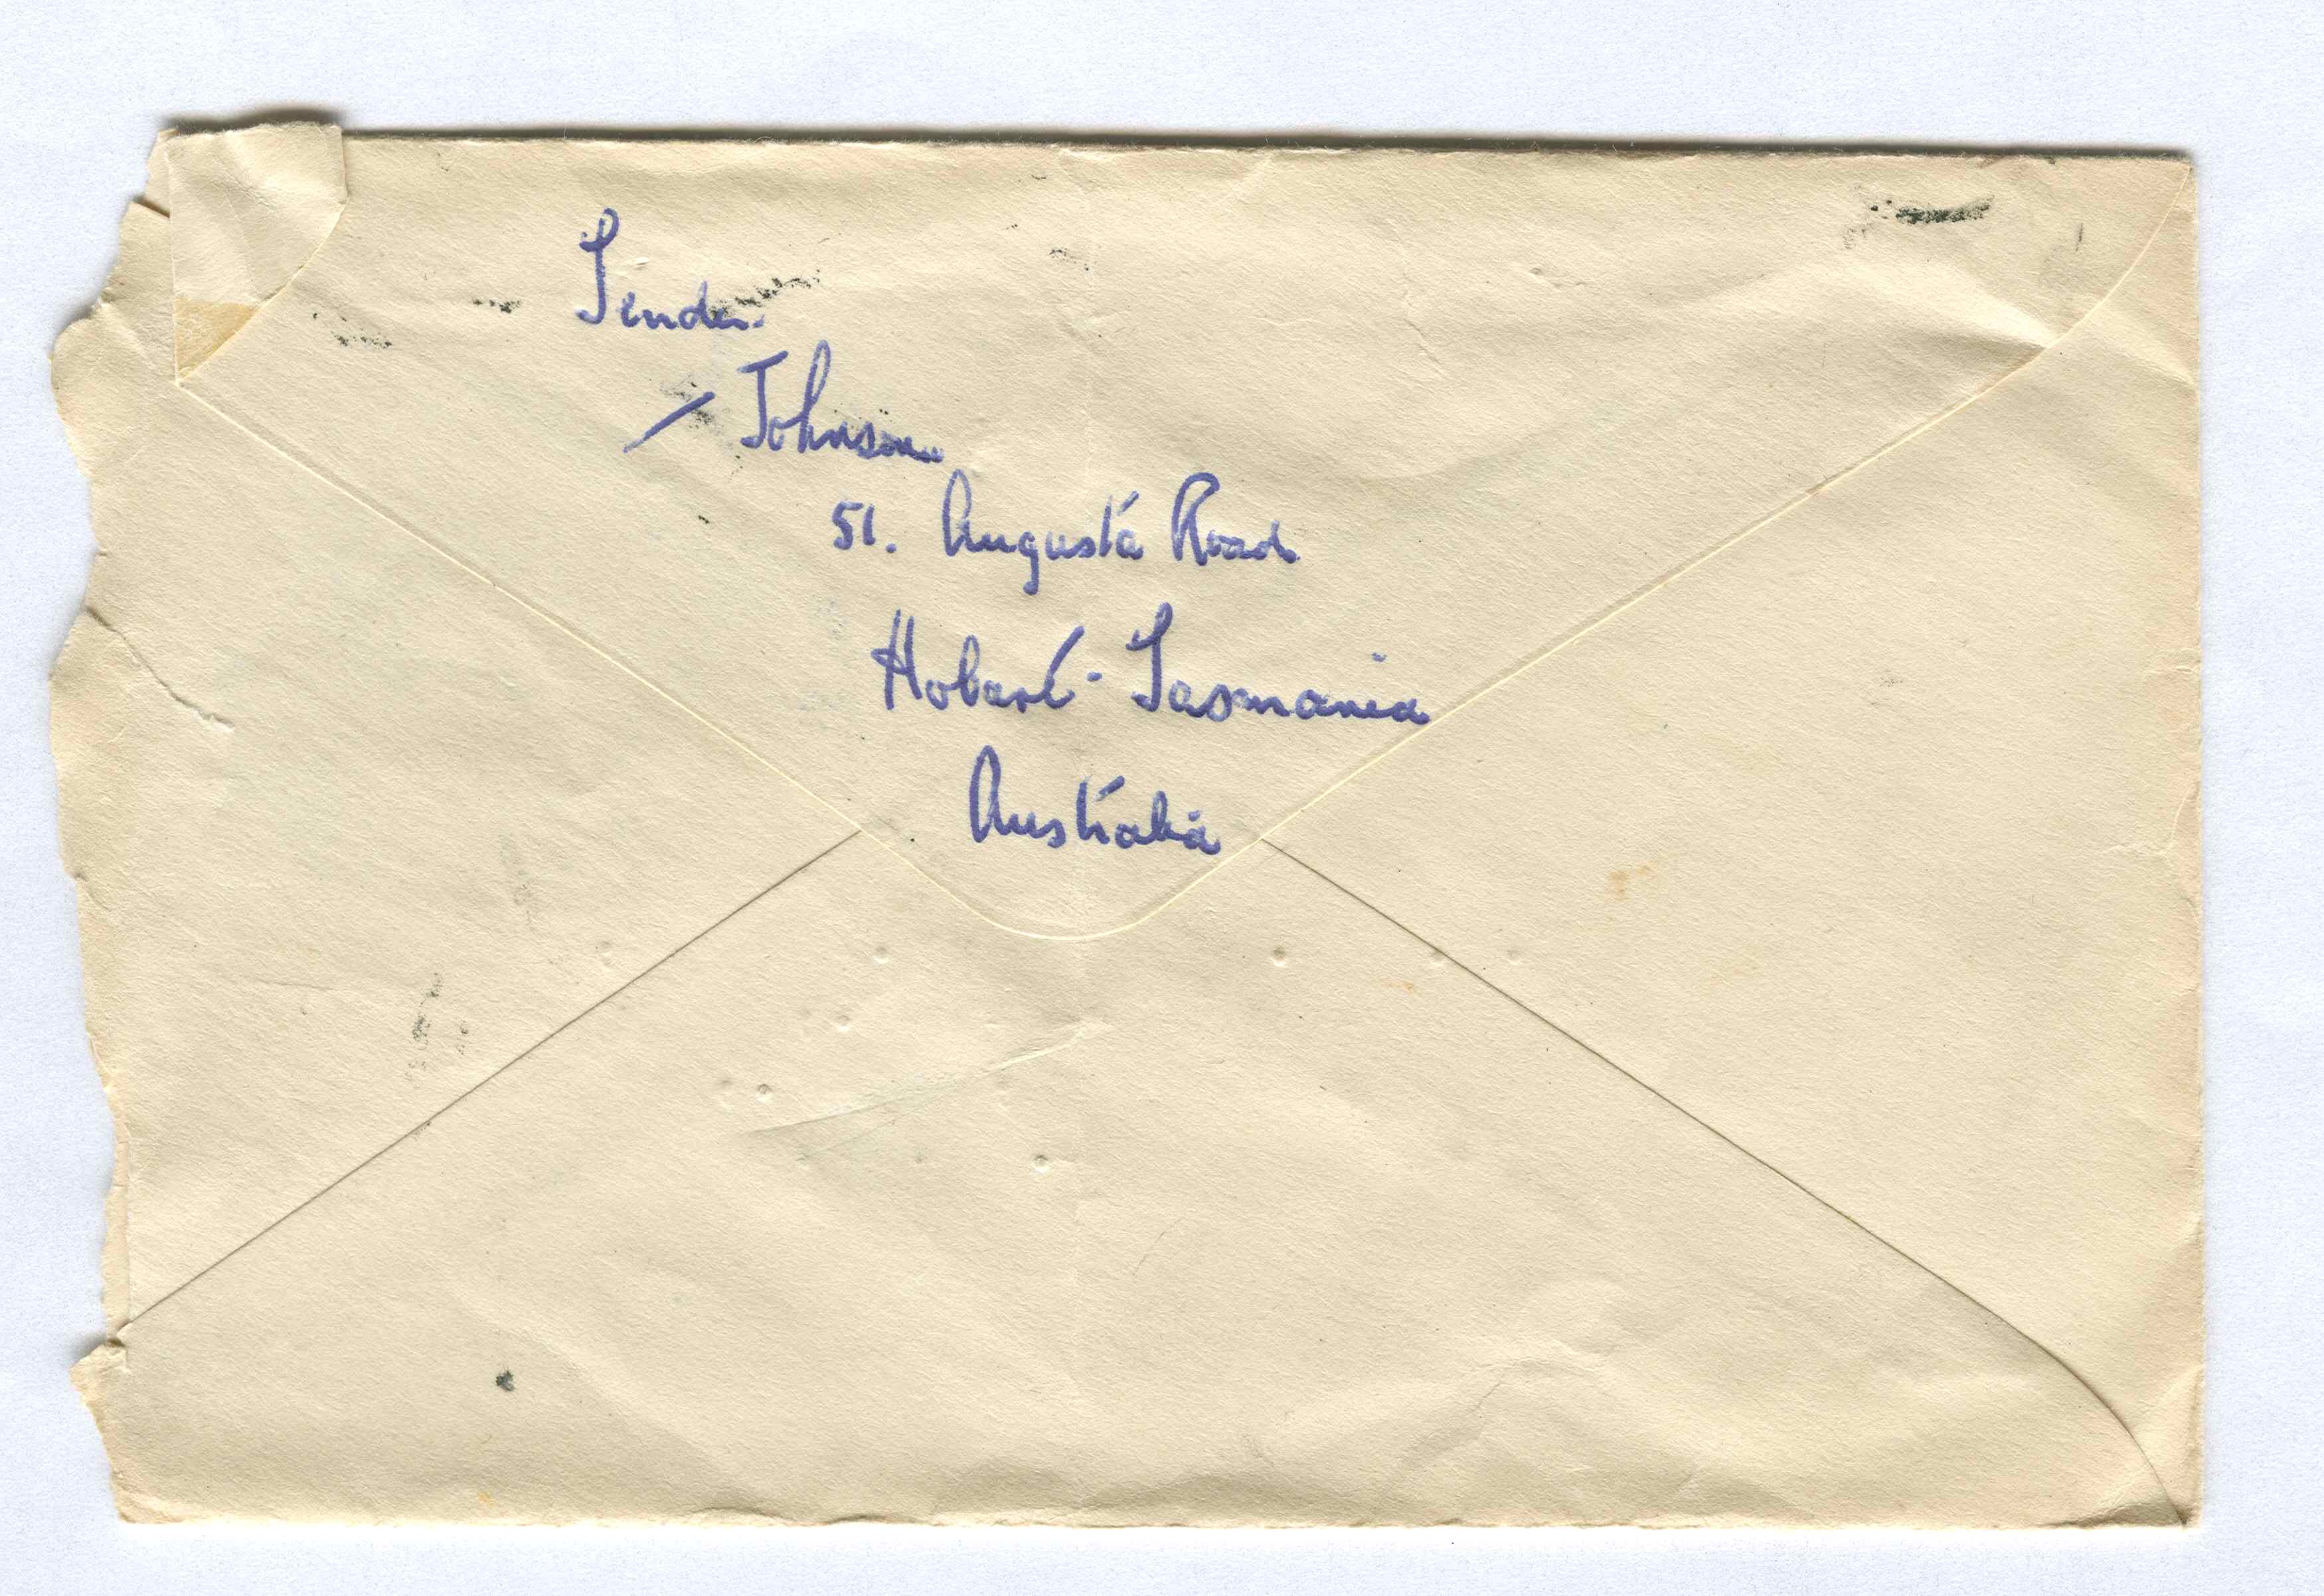 Sender.
/ Johnson
51. Augusta Road
Hobart - Tasmania
Australia